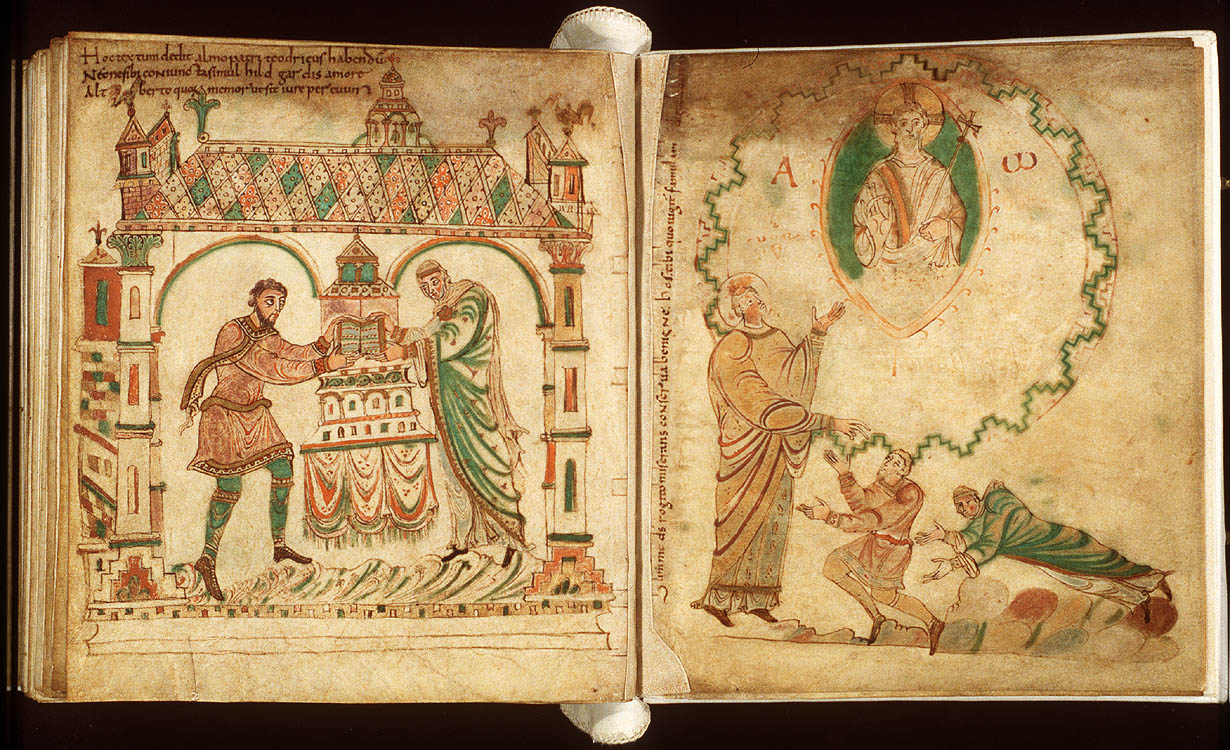 Hoc textum dedit almo patri teodricus habendū
Necne sibi coniuncta simul hildgardis amore
Altberto quoꝝ memor ut sit iure per euum
A ω
Summe ds rogito miserans conserua benigne hos tibi quo iugit famulari